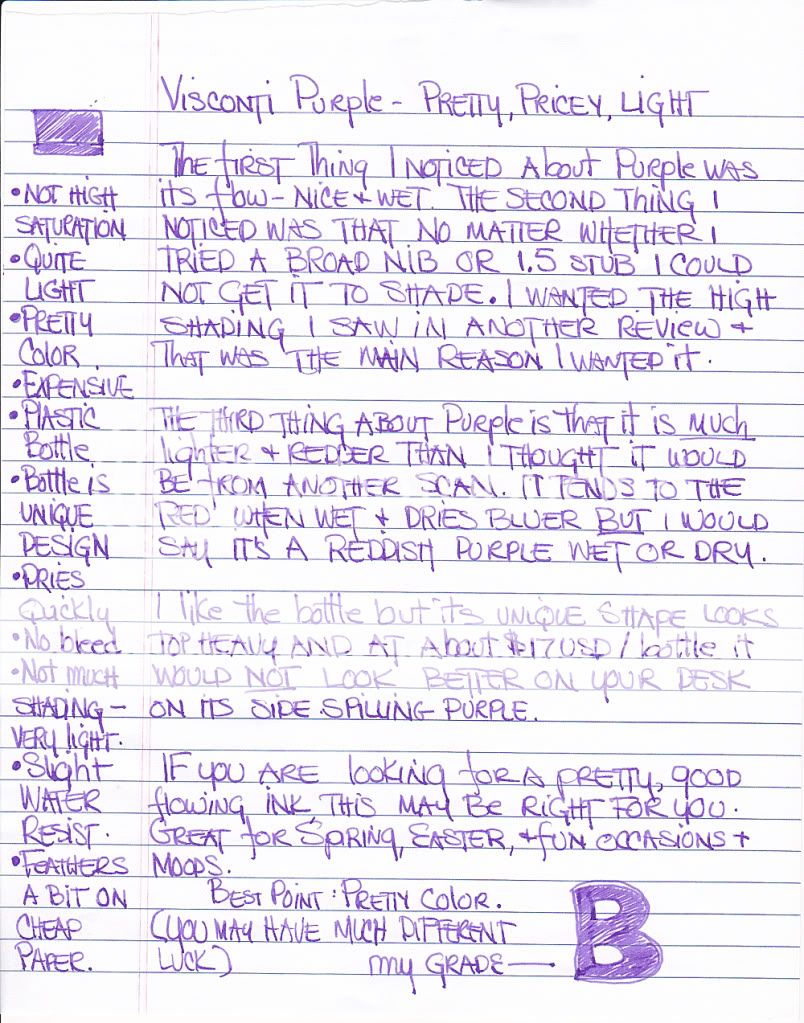 Visconti Purple - Pretty, Pricey, Light
The first thing I noticed about Purple was
its flow - nice + wet. The second thing I
noticed was that no matter whether I
tried a broad nib or 1.5 stub I could
not get it to shade. I wanted the high
shading I saw in another review +
that was the main reason I wanted it.
The third thing about Purple is that it is much
lighter + redder than I thought it would
be from another scan. It tends to the
red when wet + dries bluer but I would
say it's a reddish purple wet or dry.
I like the bottle but its unique shape looks
top heavy and at about $17 USD / bottle it
would not look better on your desk
on its side spilling purple.
If you are looking for a pretty, good
flowing ink, this may be right for you.
Great for Spring, Easter, + fun occasions +
moods.
Best Point: Pretty color.
(You may have much different
luck)
my grade — B
• Not high
saturation
• Quite
light
• Pretty
color.
• Expensive
• Plastic
Bottle
• Bottle is
unique
design
• Dries
Quickly
• No bleed
• Not much
shading -
very light.
• Slight
water
resist.
• Feathers
a bit on
cheap
paper.